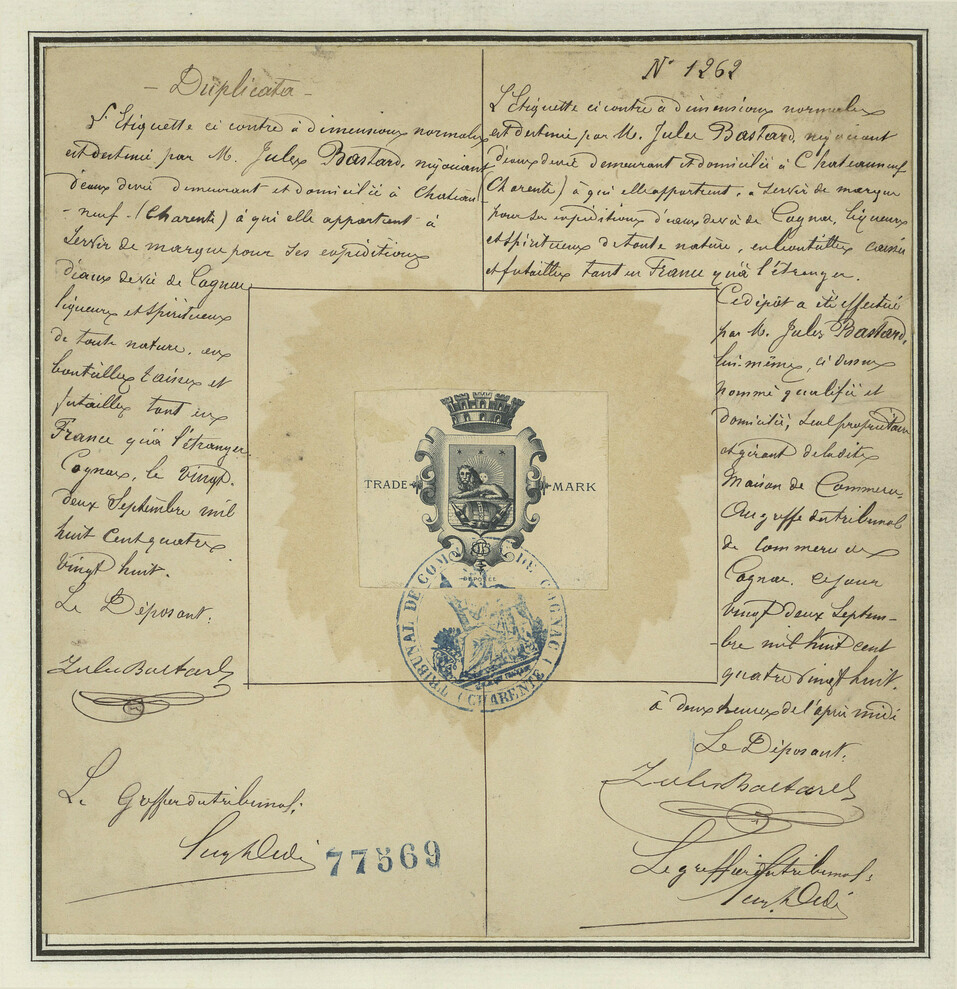 - Duplicata -
L'Etiquette ci contre à dimensions normales
est destiné par M. Jules Bastard, négociant
d'eaux de vie demeurant et domicilié à Chateau
-neuf - (Charente) à qui elle appartient - à
servir de marque pour ses expéditions
d'eaux de vie de Cognac,
liqueurs et spiritueux
de toute nature, en
bouteilles caisses et
futailles tant en
France qu'à l'étranger
Cognac, le vingt
deux Septembre mil
huit cent quatre
vingt huit.
Le Déposant.
Jules Bastard
Le Greffier du tribunal.
77569
N° 1262
L'Etiquette ci contre à dimensions normales
est destiné par M. Jules Bastard, négociant
d'eaux de vie demeurant et domicilié à Chateauneuf
Charente) à qui elle appartient, à servir de marque
pour ses expéditions d'eaux de vie de Cognac, liqueurs
et spiritueux de toute nature, en bouteilles caisses
et futailles tant en France qu'à l'étranger.
Ce dépôt a été effectué
par M. Jules Bastard,
lui-même, ci dessus
nommé qualifié et
domicilié, seul propriétaire
et gérant de la dite
Maison de Commerce,
Au greffe du tribunal
de Commerce de
Cognac, ce jour
vingt deux Septem-
-bre mil huit cent
quatre vingt huit.
à deux heures de l'après midi
Le Déposant.
Jules Bastard
Le greffier du tribunal.
TRADE MARK
JB
DÉPOSÉE
TRIBUNAL DE COM. DE COGNAC
(CHARENTE)